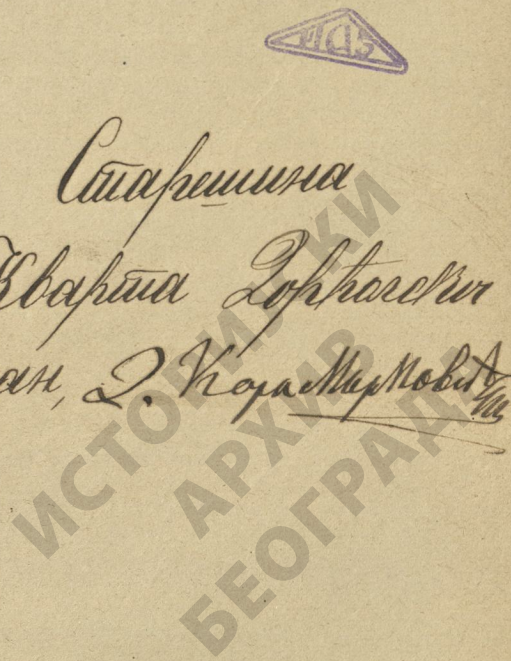 ИАБ
Старешина
Кварта Дорћолски
ан, Д. Карамарковић
ИСТОРИЈСКИ
АРХИВ
БЕОГРАДА